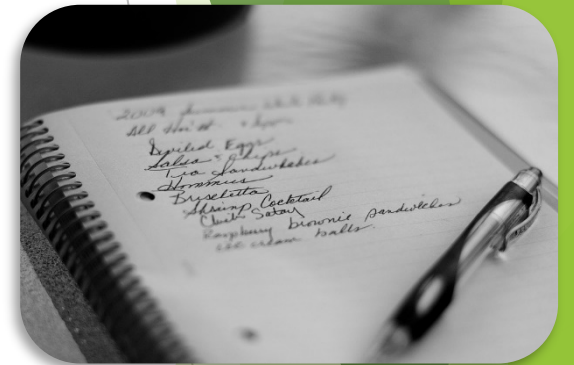 2009 Summer White Party
All Hor'st
Deviled Eggs
Salsa & Chips
Tea Sandwiches
Hommus
Bruschetta
Shrimp Cocktail
Chick Satay
Raspberry brownie sandwiches
ice cream balls.